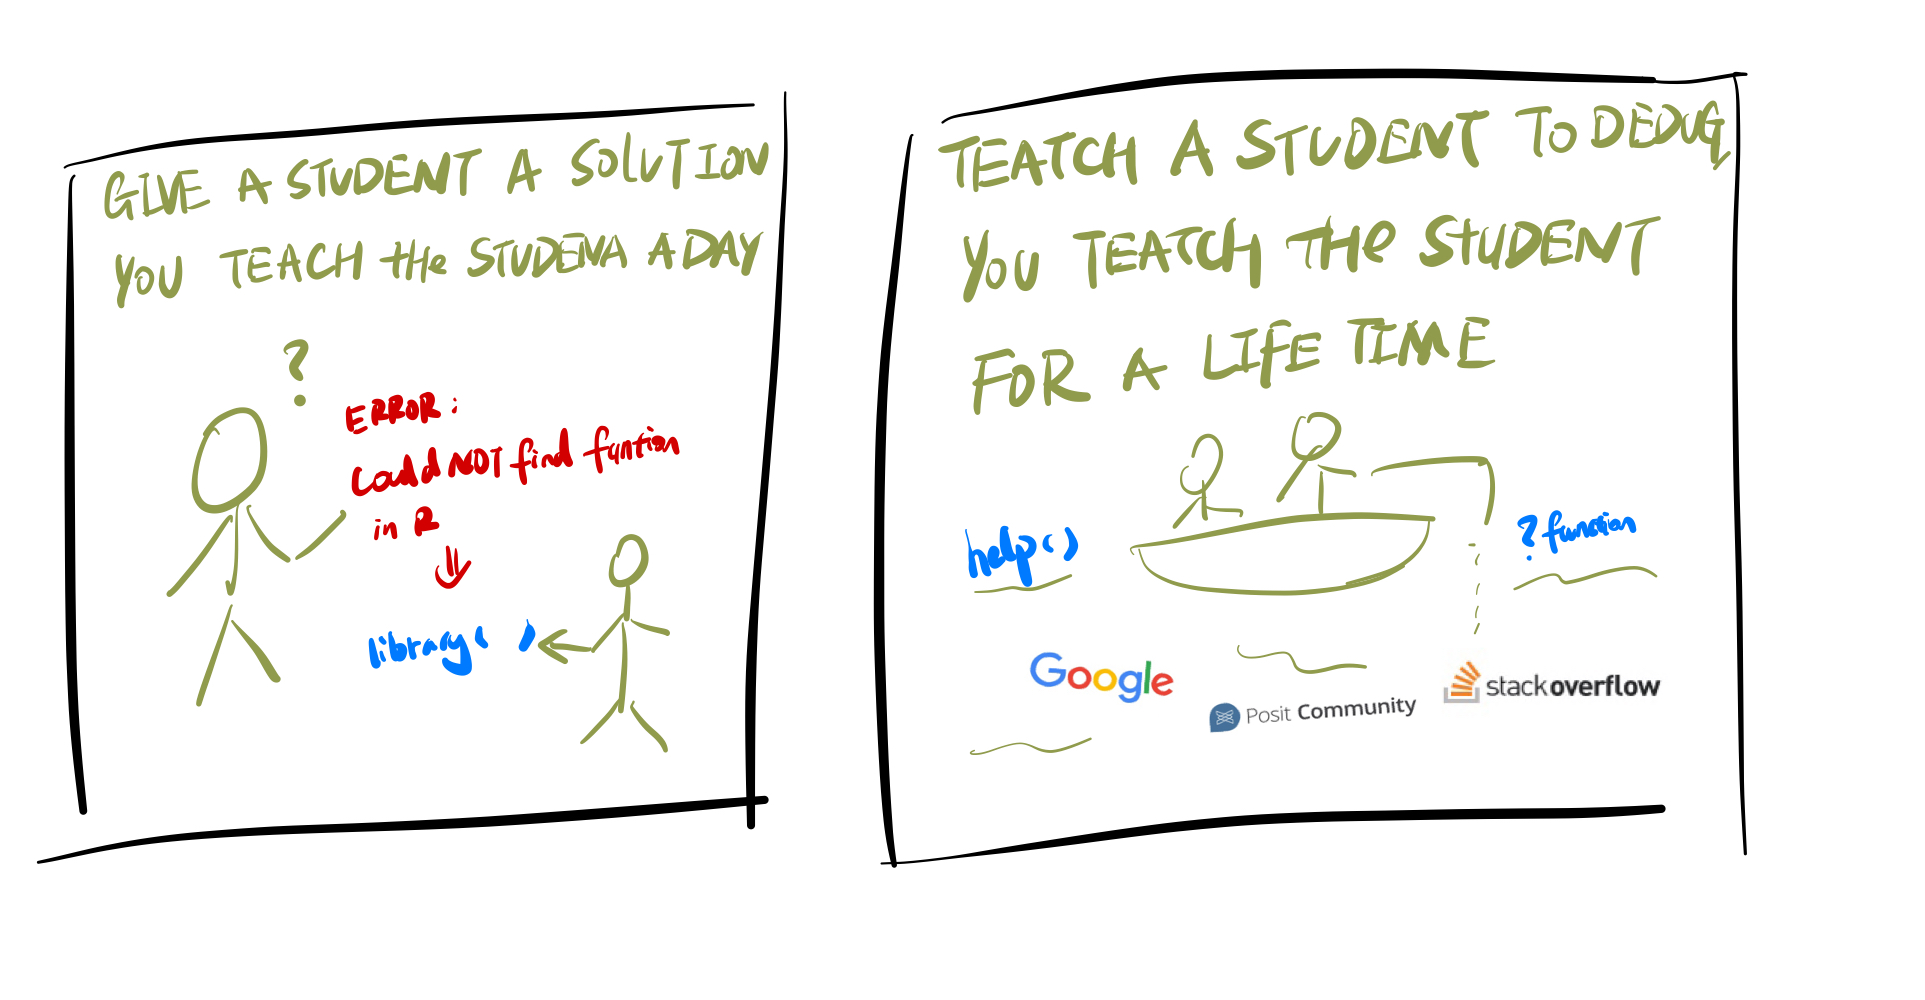 GIVE A STUDENT A SOlUTION
YOU TEACH the STUDENA A DAY
?
ERROR:
Could NOT find funtion
in R
library( )
TEATCH A STUDENT TO DEDUG
YOU TEATCH THe STUDENT
FOR A LIFE TIME
help()
? function
Google
Posit Community
stackoverflow